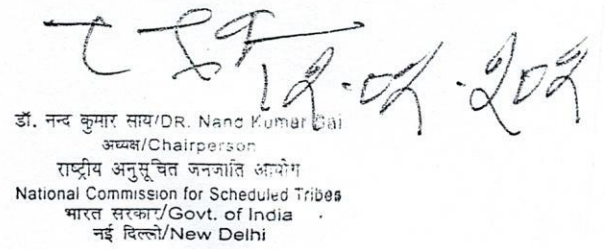 १२-०२-२०२
डॉ. नन्द कुमार साय/DR. Nand Kumar Sai
अध्यक्ष/Chairperson
राष्ट्रीय अनुसूचित जनजाति आयोग
National Commission for Scheduled Tribes
भारत सरकार/Govt. of India
नई दिल्ली/New Delhi